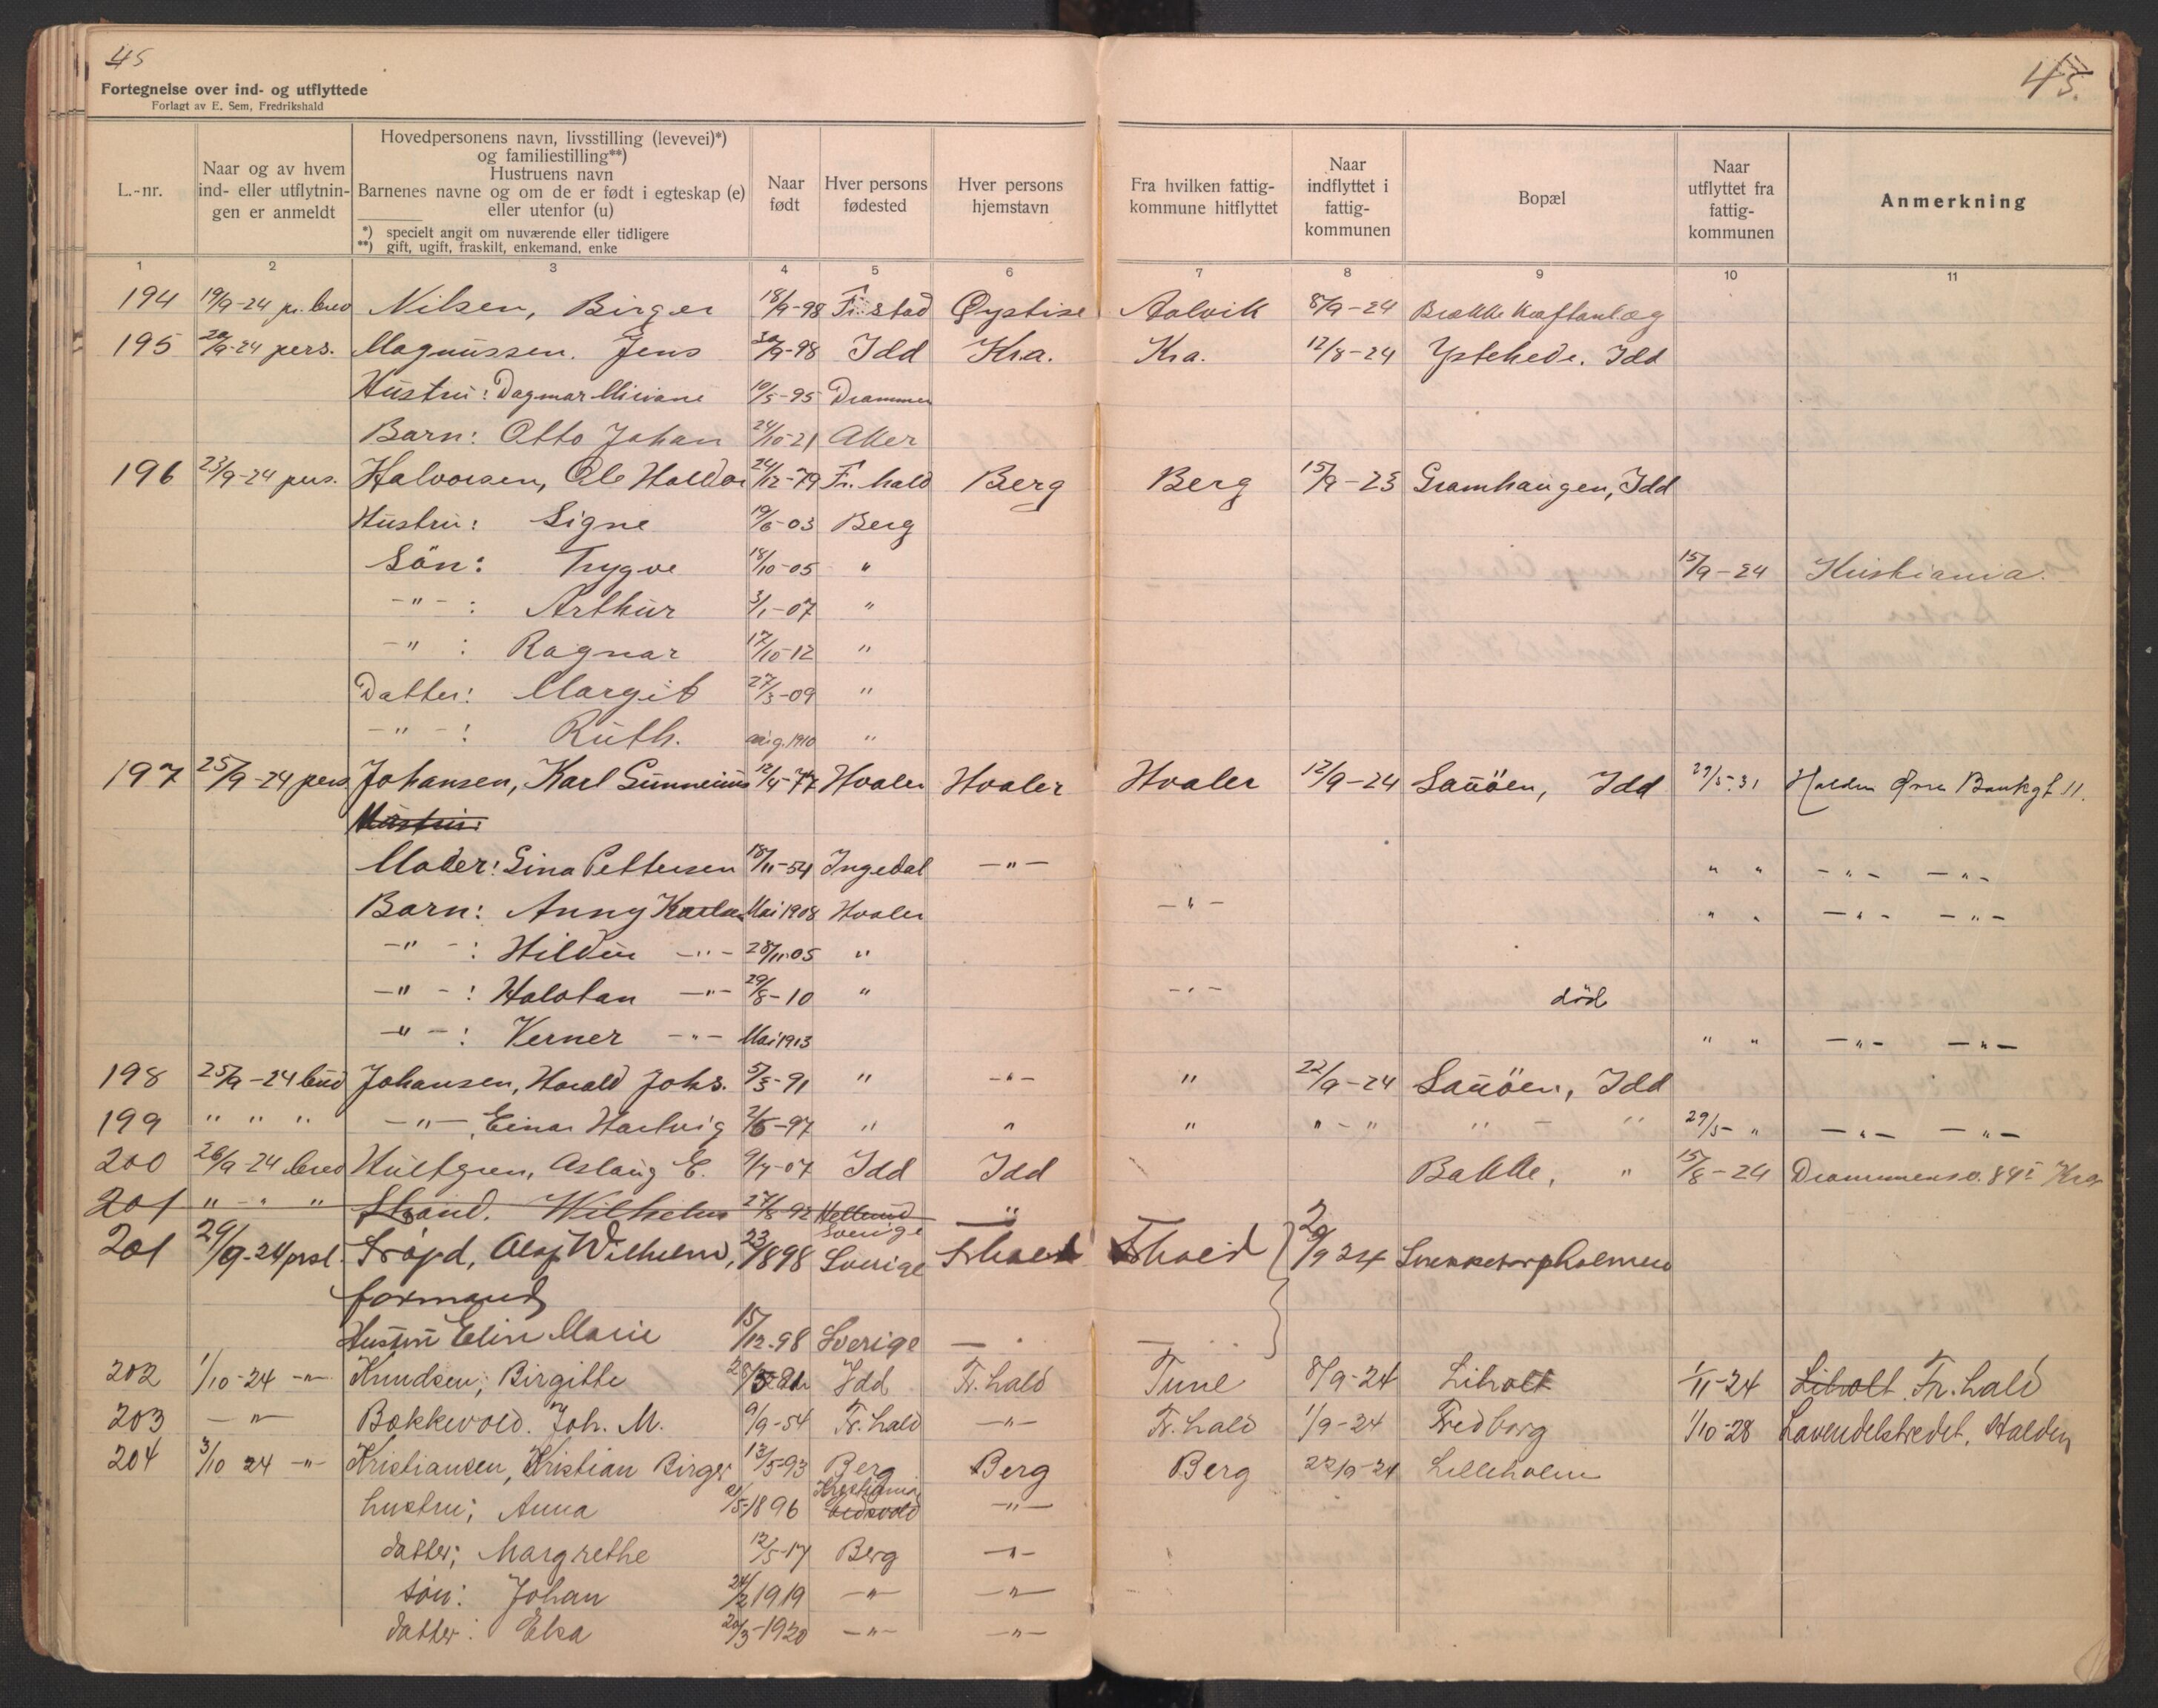 45
45.
Fortegnelse over ind- og utflyttede
Forlagt av E. Sem, Fredrikshald
L.-nr. | Naar og av hvem ind- eller utflytningen er anmeldt | Hovedpersonens navn, livsstilling (levevei)*) og familiestilling**) Hustruens navn Barnenes navne og om de er født i egteskap (e) eller utenfor (u) *) specielt angit om nuværende eller tidligere **) gift, ugift, fraskilt, enkemand, enke | Naar født | Hver persons fødested | Hver persons hjemstavn | Fra hvilken fattigkommune hitflyttet | Naar indflyttet i fattigkommunen | Bopæl | Naar utflyttet fra fattigkommunen | Anmerkning
1 2 3 4 5 6 7 8 9 10 11
194 19/9-24 pr. brev Nilsen, Birger 18/9-98 Fr.stad Øystise Aalvik 8/9-24 Brække Kraftanlæg
195 20/9-24 pers. Magnussen. Jens 30/9-98 Idd Kra. Kra. 12/8-24 Ystehede. Idd
Hustru: Dagmar Miriane 10/5-95 Drammen
Barn: Otto Johan 24/10-21 Aker
196 23/9-24 pers. Halvorsen, Ole Halldor 24/12-79 Fr. hald Berg Berg 15/9-23 Gramhaugen, Idd
Hustru: Signe 19/6-03 Berg
Sön: Trygve 18/10-05 " 15/9-24 Kristiania.
-"- : Arthur 3/1-07 "
-" : Ragnar 17/10-12 "
Datter: Margit 27/3-09 "
-"- : Ruth. aug.1910 "
197 25/9-24 pers Johansen, Karl Gunnerius 12/4-77 Hvaler Hvaler Hvaler 12/9-24 Sauöen, Idd 29/5-31 Halden Øvre Bankgt 11.
Hustru:
Moder: Lina Pettersen 18/11-54 Ingedal -"- " " -"- -"-
Barn: Anny Karlsen Mai 1908 Hvaler -"- " " -"- -"-
-"- : Hildur -"- 28/11-05 "
-"- : Halvtan -"- 29/8-10 " -"- död
-"- : Verner -"- Mai 1913 " " -"- -"-
198 25/9-24 bud Johansen, Harald Johs. 5/3-91 " -"- " 22/9-24 Sauöen, Idd
199 " " " -"-, Einar Hartvig 2/6-97 " " " " - " " - " 29/5- " -"- -"-
200 26/9-24 brev Hultgren, Aslaug E. 9/7-07 Idd Idd Bakke, " 15/8-24 Drammensv. 84 I Kra
201 " - " " Strand. Wilhelm 27/8-92 Sverige "
201 29/9-24 prsl. Sröyd, Olaf Wilhelm, 23/1898 Sverige Fhald Fhald 29/9 24 Snekketorpholmen
formand
Hustru Elin Marie 15/12-98 Sverige
202 1/10-24 -"- Knudsen; Birgitte Idd Fr. hald Tune 8/9-24 Liholt 1/11-24 Liholt Fr. hald
203 -"- Bækkevold. Joh. M. 9/9-54 Fr. hald -"- Fr. hald 1/9-24 Fredborg 1/10-28 Lavendelstredet, Halden
204 3/10 24 -"- Kristiansen, Kristian Birger 13/5-93 Berg Berg Berg 22/9-24 Lilleholm
hustru; Anna /5-1896 Kristiania Eidsvold -"-
datter; Margrethe 12/5-17 Berg -"-
sön: Johan 24/2 1919 -"- -"-
datter: Elsa 20/3-1920 -"- -"-